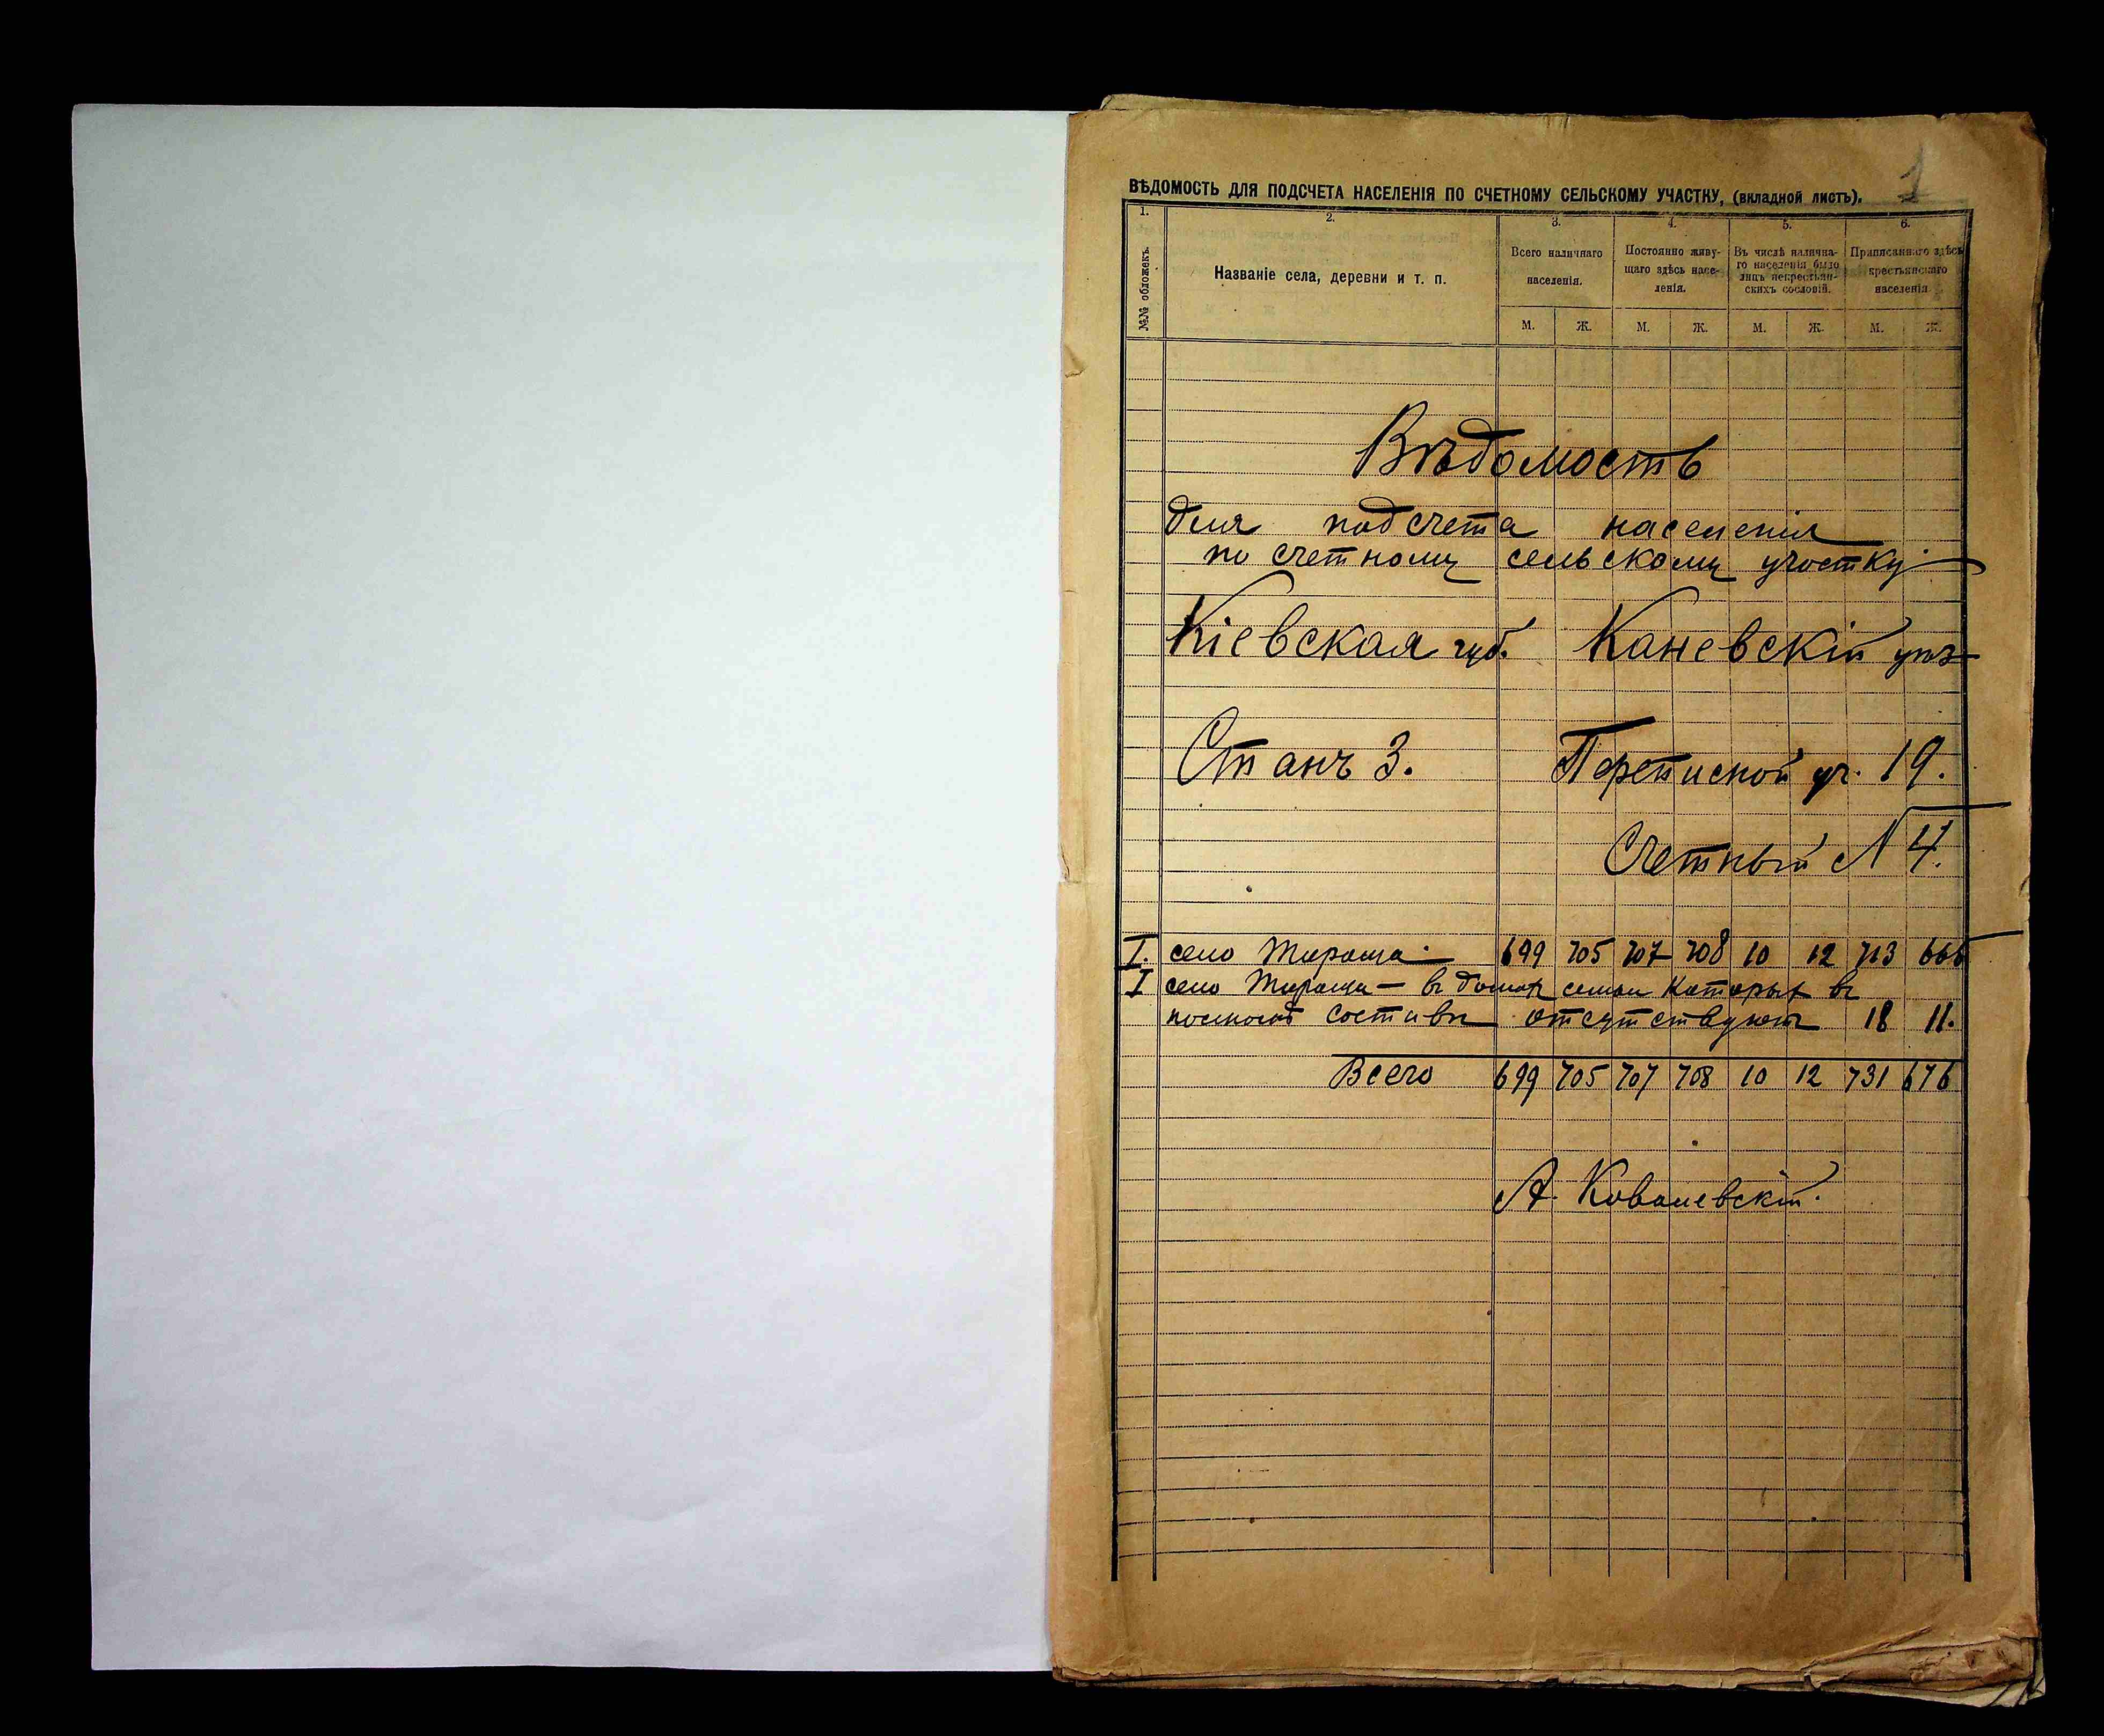 1
ВѢДОМОСТЬ ДЛЯ ПОДСЧЕТА НАСЕЛЕНІЯ ПО СЧЕТНОМУ СЕЛЬСКОМУ УЧАСТКУ, (вкладной листъ).
1. 2. 3. 4. 5. 6.
№№ обложекъ.
Названіе села, деревни и т. п.
Всего наличнаго
населенія.
Постоянно живу-
щаго здѣсь насе-
ленія.
Въ числѣ налична-
го населенія было
лицъ некрестьян-
скихъ сословій.
Приписаннаго здѣсь
крестьянскаго
населенія
М. Ж. М. Ж. М. Ж. М. Ж.
Вѣдомость
для подсчета населенія
по счетному сельскому участку
Кіевская губ. Каневскій уѣз
Станъ 3. Переписной уч. 19.
Счетный № 4.
I. село 699 705 707 708 10 12 713 665
I село въ семьи которыхъ въ
составѣ отсутствуютъ 18 11.
Всего 699 705 707 708 10 12 731 676
А. Ковалевскій.